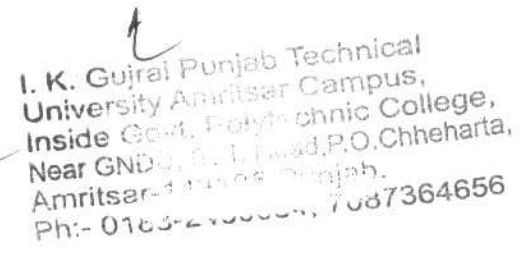 I. K. Gujral Punjab Technical
University Amritsar Campus,
Inside Govt. Polytechnic College,
Near GNDU, Road,P.O.Chheharta,
Amritsar- Punjab.
Ph:- 7087364656